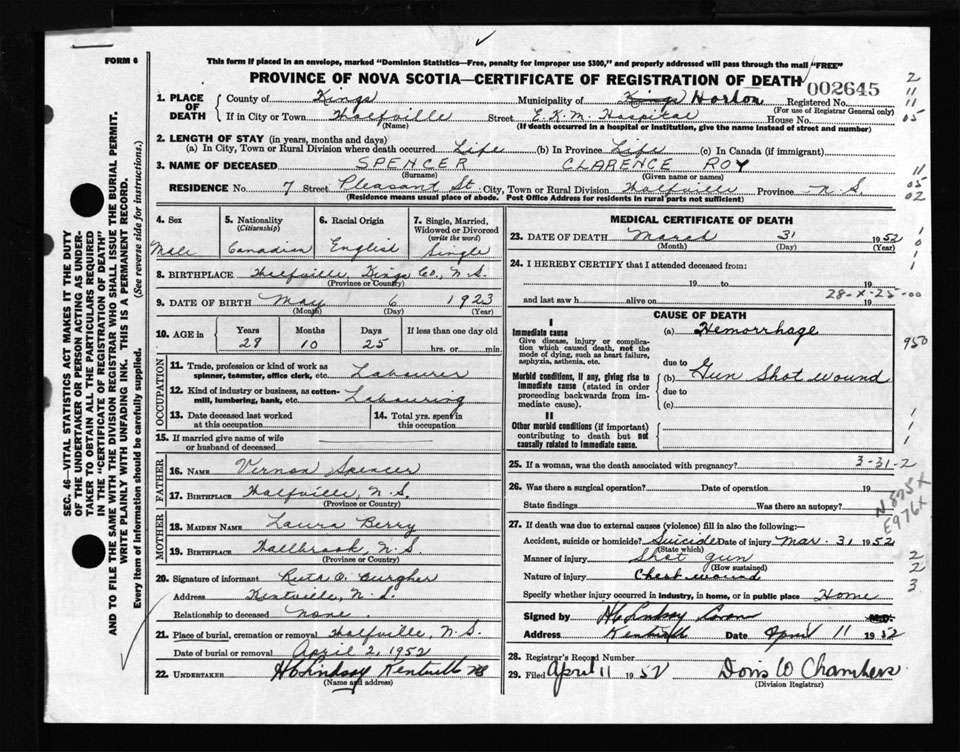 FORM 6
This form if placed in an envelope, marked "Dominion Statistics—Free, penalty for improper use $300," and properly addressed will pass through the mail "FREE"
PROVINCE OF NOVA SCOTIA—CERTIFICATE OF REGISTRATION OF DEATH 002645
1. PLACE OF DEATH { County of Kings Municipality of Kings Horton Registered No.
(For use of Registrar General only)
If in City or Town Wolfville Street E.K.M. Hospital House No.
(Name) (If death occurred in a hospital or institution, give the name instead of street and number)
2. LENGTH OF STAY (in years, months and days)
(a) In City, Town or Rural Division where death occurred Life (b) In Province Life (c) In Canada (if immigrant)
3. NAME OF DECEASED SPENCER CLARENCE ROY
(Surname) (Given name or names)
RESIDENCE No. 7 Street Pleasant St. City, Town or Rural Division Wolfville Province N.S.
(Residence means usual place of abode. Post Office Address for residents in rural parts not sufficient)
2
11
11
05
11
05
02
4. Sex
Male
5. Nationality
(Citizenship)
Canadian
6. Racial Origin
English
7. Single, Married, Widowed or Divorced
(write the word)
Single
8. BIRTHPLACE Wolfville, Kings Co., N.S.
(Province or Country)
9. DATE OF BIRTH May 6 1923
(Month) (Day) (Year)
10. AGE in { Years Months Days If less than one day old
28 10 25 hrs. or min.
OCCUPATION
11. Trade, profession or kind of work as spinner, teamster, office clerk, etc. Labourer
12. Kind of industry or business, as cotton-mill, lumbering, bank, etc. Labouring
13. Date deceased last worked at this occupation
14. Total yrs. spent in this occupation
15. If married give name of wife or husband of deceased
FATHER
16. NAME Vernon Spencer
17. BIRTHPLACE Wolfville, N.S.
(Province or Country)
MOTHER
18. MAIDEN NAME Laura Berry
19. BIRTHPLACE Wallbrook, N.S.
(Province or Country)
20. Signature of informant Ruth O. Burgher
Address Kentville, N.S.
Relationship to deceased none.
21. Place of burial, cremation or removal Wolfville, N.S.
Date of burial or removal April 2, 1952
22. UNDERTAKER H C Lindsay Kentville NS
(Name and address)
MEDICAL CERTIFICATE OF DEATH
23. DATE OF DEATH March 31 1952
(Month) (Day) (Year)
24. I HEREBY CERTIFY that I attended deceased from:
19 to 19
28-X-25-00
and last saw h alive on 19
CAUSE OF DEATH
I
Immediate cause
Give disease, injury or complication which caused death, not the mode of dying, such as heart failure, asphyxia, asthenia, etc.
(a) Hemorrhage
950
due to
Morbid conditions, if any, giving rise to immediate cause (stated in order proceeding backwards from immediate cause).
(b) Gun Shot wound
due to
(c)
II
Other morbid conditions (if important) contributing to death but not causally related to immediate cause.
25. If a woman, was the death associated with pregnancy? 3-31-2
26. Was there a surgical operation? Date of operation 19
State findings Was there an autopsy?
N875X
E976X
27. If death was due to external causes (violence) fill in also the following:—
Accident, suicide or homicide? Suicide Date of injury Mar. 31 1952
(State which)
Manner of injury Shot gun
(How sustained)
Nature of injury Chest wound
Specify whether injury occurred in industry, in home, or in public place Home
2
2
3
Signed by M.D.
Address Kentville Date April 11 1952
28. Registrar's Record Number
29. Filed April 11 1952 Doris W Chambers
(Division Registrar)
SEC. 46—VITAL STATISTICS ACT MAKES IT THE DUTY
OF THE UNDERTAKER OR PERSON ACTING AS UNDERTAKER
TO OBTAIN ALL THE PARTICULARS REQUIRED
IN THE "CERTIFICATE OF REGISTRATION OF DEATH"
AND TO FILE THE SAME WITH THE DIVISION REGISTRAR WHO SHALL ISSUE THE BURIAL PERMIT.
WRITE PLAINLY WITH UNFADING INK. THIS IS A PERMANENT RECORD.
Every item of information should be carefully supplied. (See reverse side for instructions.)